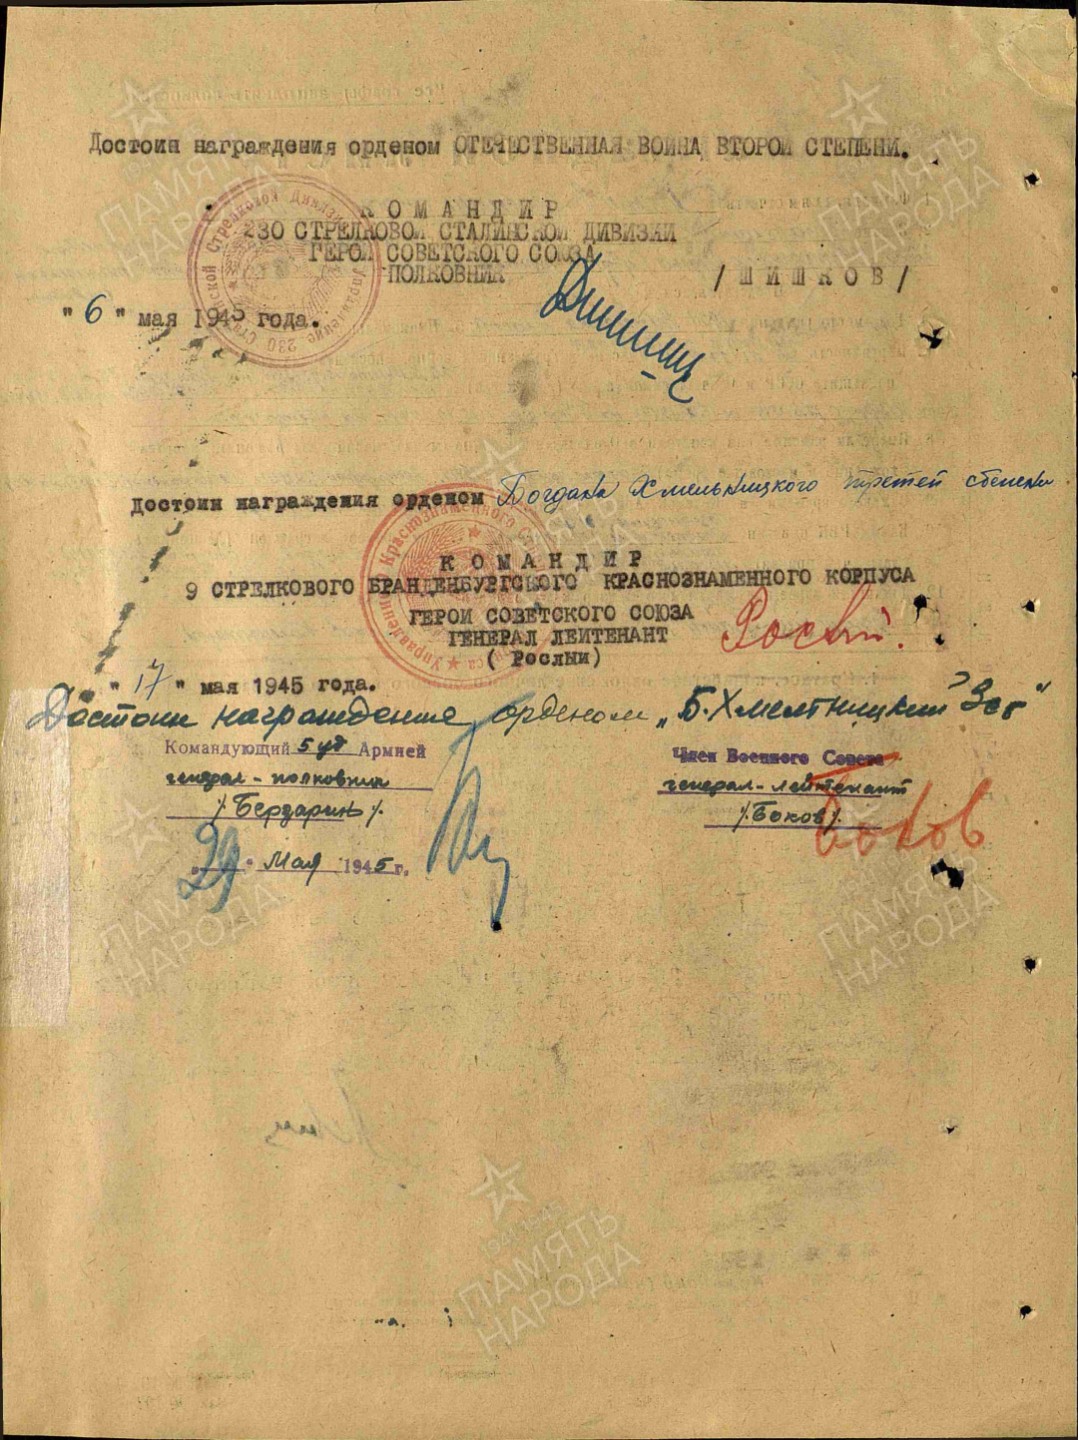 Достоин награждения орденом ОТЕЧЕСТВЕННАЯ ВОЙНА ВТОРОЙ СТЕПЕНИ.
К О М А Н Д И Р
230 СТРЕЛКОВОЙ СТАЛИНСКОЙ ДИВИЗИИ
ГЕРОЙ СОВЕТСКОГО СОЮЗА
ПОЛКОВНИК / Ш И Ш К О В /
"6" мая 1945 года.
Достоин награждения орденом Богдана Хмельницкого третей степени
К О М А Н Д И Р
9 СТРЕЛКОВОГО БРАНДЕНБУРГСКОГО КРАСНОЗНАМЕННОГО КОРПУСА
ГЕРОЙ СОВЕТСКОГО СОЮЗА
ГЕНЕРАЛ ЛЕЙТЕНАНТ Рослый.
( Рослый)
"17" мая 1945 года.
Достоин награждение орденом „Б.Хмелтницкий 3ст"
Командующий 5 уд Армией Член Военного Совета
генерал-полковник генерал-лейтенант
/.Берзарин/. /.Боков/. Боков
"29" Мая 1945 г.
ПАМЯТЬ НАРОДА
ПАМЯТЬ НАРОДА
ПАМЯТЬ НАРОДА
ПАМЯТЬ НАРОДА
1941-1945
ПАМЯТЬ НАРОДА